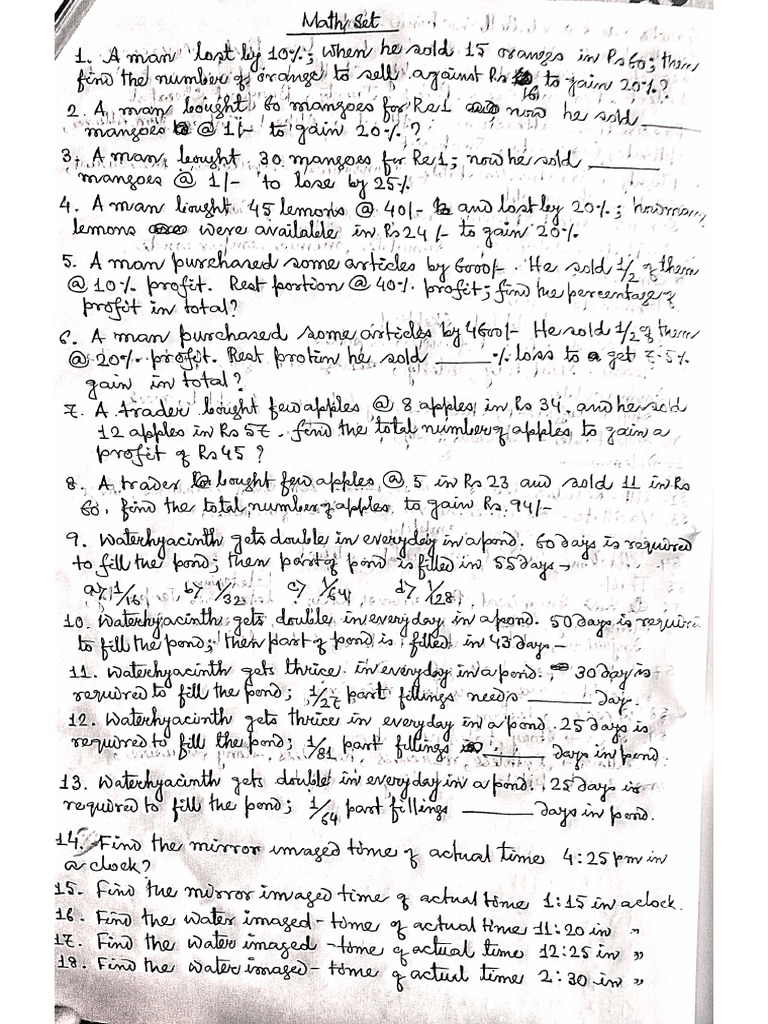 Math Set
1. A man lost by 10%; when he sold 15 oranges in Rs 60; then
find the number of orange to sell against Rs 16 to gain 20%?
2. A man bought 60 mangoes for Re1 now he sold ______
mangoes @ 1/- to gain 20%?
3. A man bought 30 mangoes for Re1; now he sold ______
mangoes @ 1/- to lose by 25%
4. A man bought 45 lemons @ 40/- and lost by 20%; how many
lemons were available in Rs 24/- to gain 20%
5. A man purchased some articles by 6000/-. He sold 1/2 of them
@ 10% profit. Rest portion @ 40% profit; find the percentage of
profit in total?
6. A man purchased some articles by 4600/- He sold 1/2 of them
@ 20% profit. Rest protin he sold ______% loss to get 7.5%
gain in total?
7. A trader bought few apples @ 8 apples in Rs 34. and he sold
12 apples in Rs 57. find the total number of apples to gain a
profit of Rs 45?
8. A trader bought few apples @ 5 in Rs 23 and sold 11 in Rs
60. find the total number of apples to gain Rs. 94/-
9. Waterhyacinth gets double in everyday in a pond. 60 days is required
to fill the pond; then part of pond is filled in 55 days -
a) 1/16 b) 1/32 c) 1/64 d) 1/128
10. Waterhyacinth gets double in everyday in a pond. 50 days is require
to fill the pond; then part of pond is filled in 43 days -
11. Waterhyacinth gets thrice in everyday in a pond. 30 day is
required to fill the pond; 1/27 part fillings needs ______ day.
12. Waterhyacinth gets thrice in everyday in a pond. 25 days is
required to fill the pond; 1/81 part fillings ______ days in pond
13. Waterhyacinth gets double in everyday in a pond. 25 days is
required to fill the pond; 1/64 part fillings ______ days in pond.
14. Find the mirror imaged time of actual time 4:25 pm in
a clock?
15. Find the mirror imaged time of actual time 1:15 in a clock.
16. Find the water imaged - time of actual time 11:20 in "
17. Find the water imaged - time of actual time 12:25 in "
18. Find the water imaged - time of actual time 2:30 in "